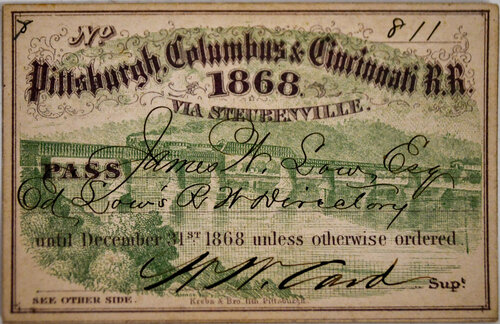 No 811
Pittsburgh, Columbus & Cincinnati R.R.
1868.
VIA STEUBENVILLE.
PASS James W. Low, Esq
Ed Low's R W Directory
until December 31ST 1868 unless otherwise ordered
W. W. Card Supt
SEE OTHER SIDE. Krebs & Bro. lith Pittsburgh.